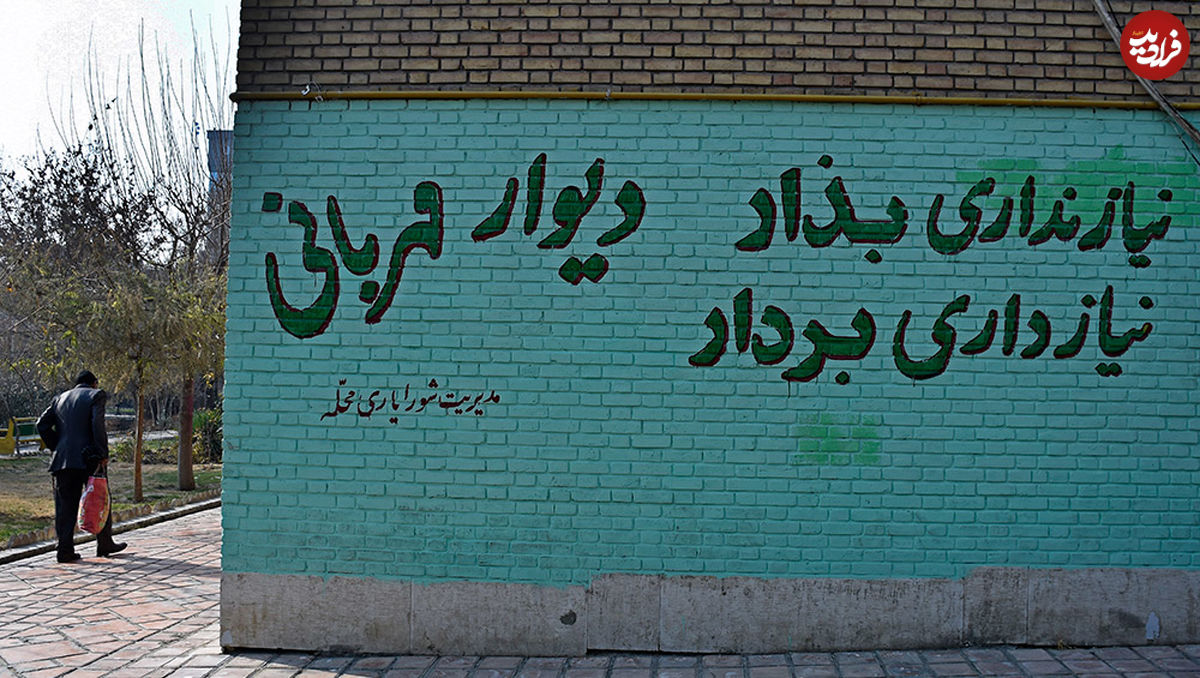 فرادید
نیازنداری بذار
نیازداری بردار
دیوار مهربانی
مدیریت شورایاری محلّه